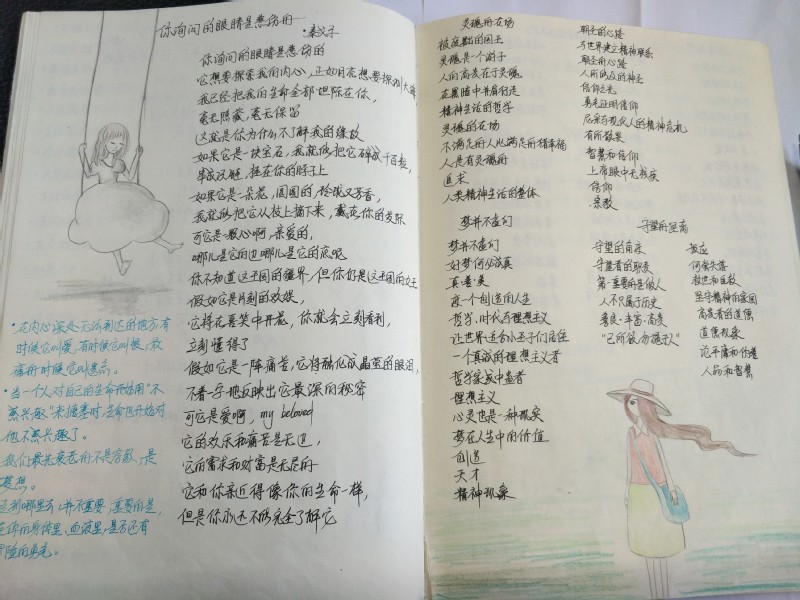 你询问的眼睛是悲伤的
·泰戈尔
你询问的眼睛是悲伤的
它想要探索我的内心，正如月亮想要探测大海
我已经把我的生命全部坦陈在你，
毫无隐藏，毫无保留
这就是你为什么不了解我的缘故
如果它是一块宝石，我就能把它碎成千百粒，
串成项链，挂在你的脖子上
如果它是一朵花，圆圆的，玲珑又芳香，
我就能把它从枝上摘下来，戴在你的发际
可它是一颗心啊，亲爱的，
哪儿是它的边哪儿是它的底呢
你不知道这王国的疆界，但你仍是这王国的女王
假如它是片刻的欢娱，
它将在喜笑中开花，你就会立刻看到，
立刻懂得了
假如它是一阵痛苦，它将融化成晶莹的眼泪，
不着一字地反映出它最深的秘密
可它是爱啊，my beloved
它的欢乐和痛苦是无边，
它的需求和财富是无尽的
它和你亲近得像你的生命一样，
但是你永远不能完全了解它
·在内心深处无法到达的地方有
时候它叫爱，有时候它叫恨，放
痛
时候它叫遗忘。
·当一个人对自己的生命开始用"不
感兴趣"来搪塞时，生命也开始对
他不感兴趣了。
我们最先衰老的不是容貌，是
梦想。
到哪里去，并不重要，重要的是，
在你的身体里、血液里，是否还有
冒险的勇气。
灵魂的在场
被废黜的国王
灵魂是一个游子
人的高贵在于灵魂
在黑暗中并肩行走
精神生活的哲学
灵魂的在场
不满足的人比满足的猪幸福
人是有灵魂的
追求
人类精神生活的整体
朝圣的心路
与世界建立精神联系
朝圣的心路
人所仰望的神圣
信仰之光
真老证明信仰
尼采与现代人的精神危机
有所敬畏
智慧和信仰
上帝眼中无残疾
信仰
宗教
梦并不虚幻
梦并不虚幻
好梦何必成真
真·善·美
度一个创造的人生
哲学、时代与理想主义
让世界适合小王子们居住
一个真诚的理想主义者
哲学家或中毒者
理想主义
心灵也是一种现实
梦在人生中的价值
创造
天才
精神现象
守望的距离
守望的角度
守望者的职责
第一重要的是做人
人不只属于历史
善良·丰富·高贵
"己所欲，勿施于人"
救世和自救
坚守精神的家园
高贵者的道德
道德现象
论平庸和伪善
人品和智慧